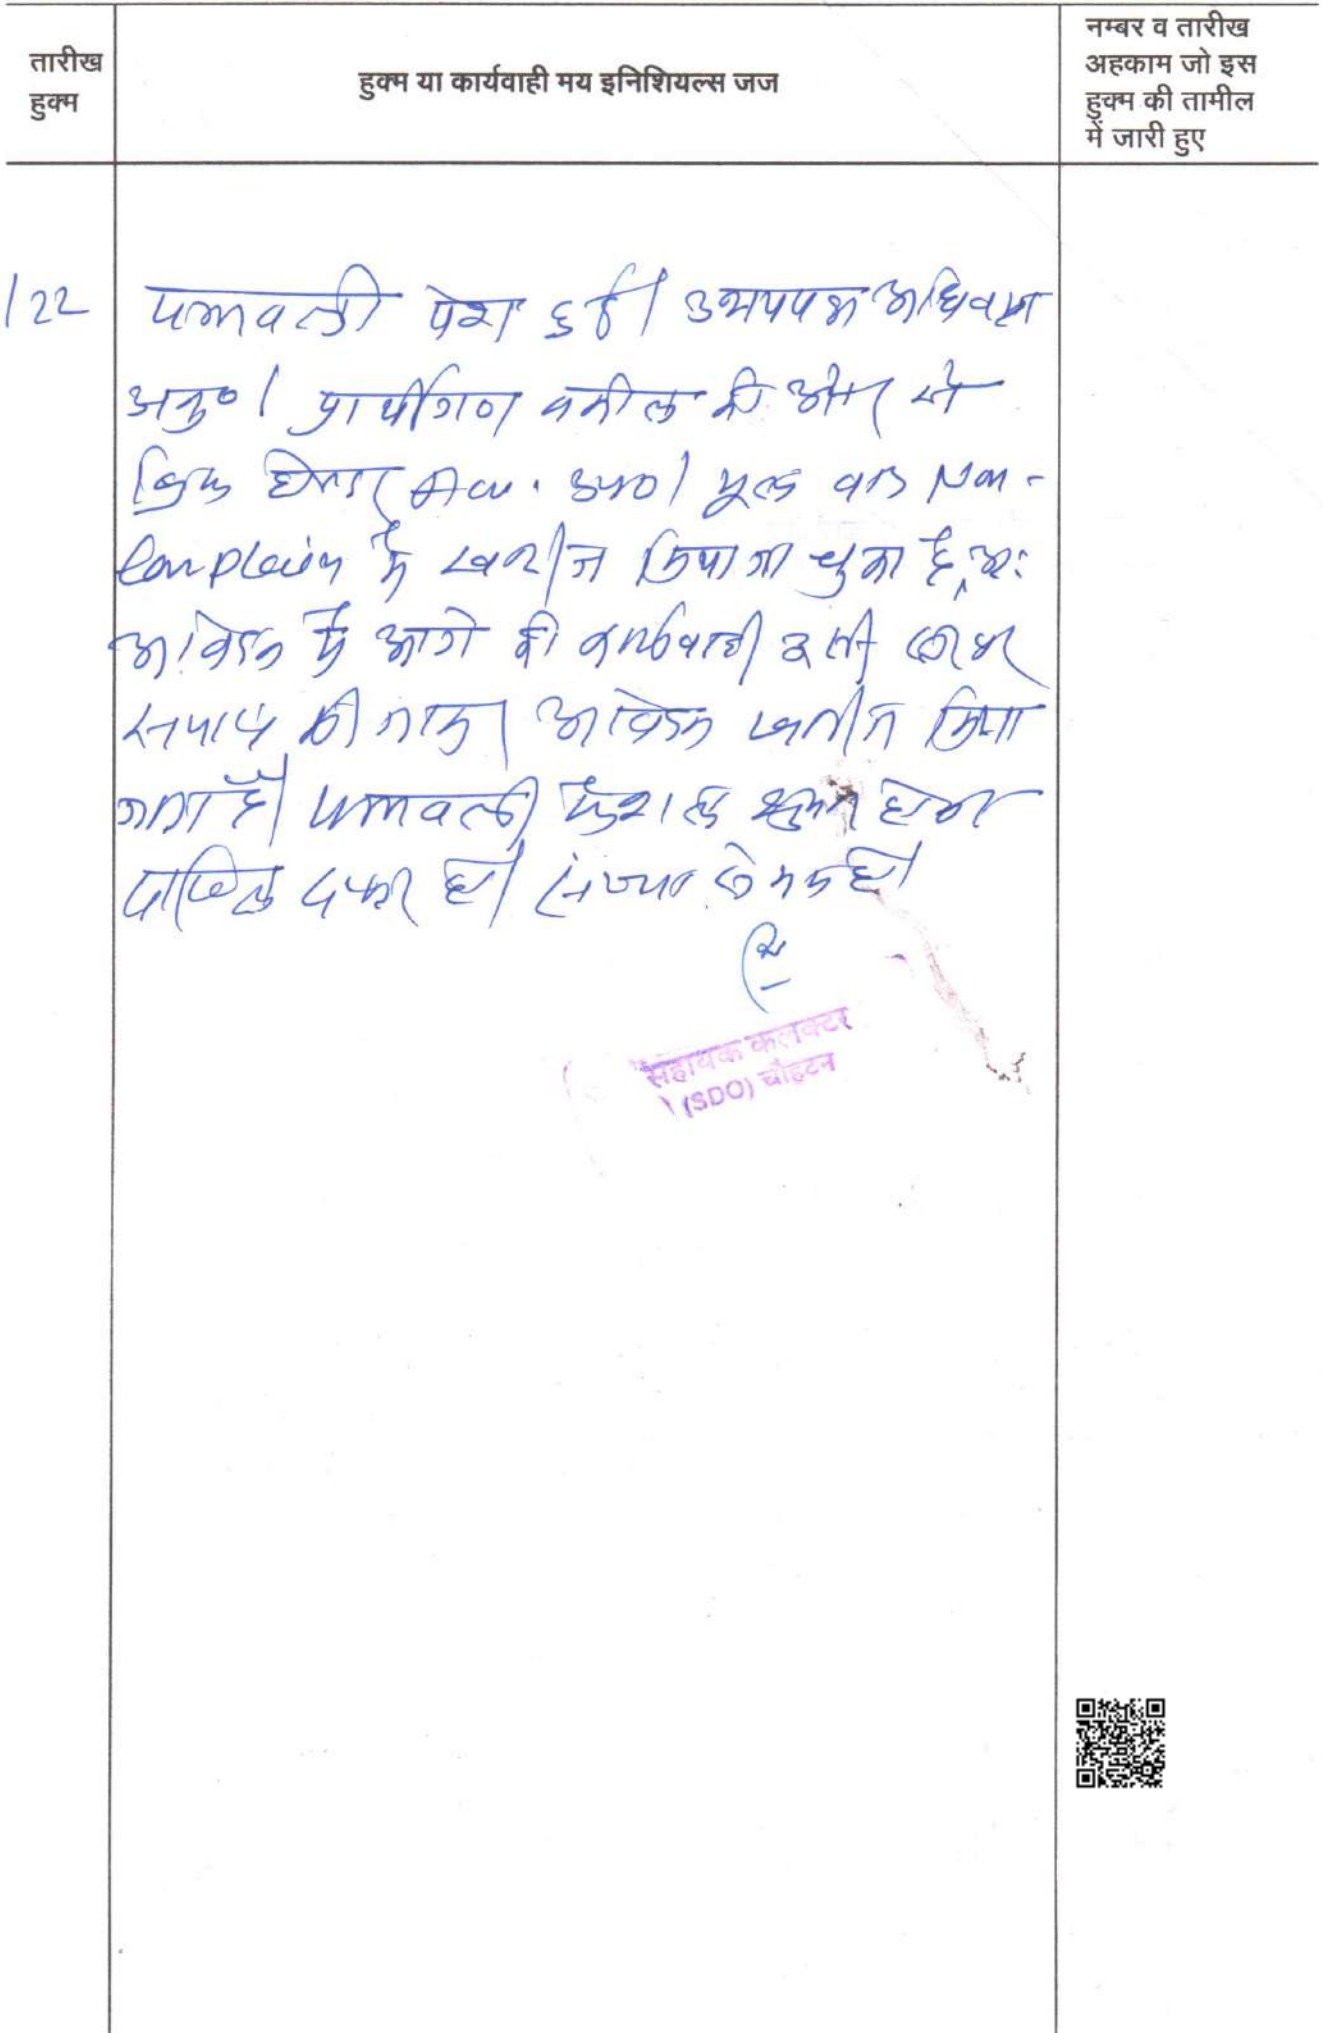 तारीख
हुक्म
हुक्म या कार्यवाही मय इनिशियल्स जज
नम्बर व तारीख
अहकाम जो इस
हुक्म की तामील
में जारी हुए
/22 पत्रावली पेश हुई। उभयपक्ष अधिवक्ता
अनु०। प्रार्थीगण वकील की ओर से
मूल वाद Non-
Complain में खारीज किया जा चुका है, अतः
आवेदन में आगे की कार्यवाही इसी स्तर पर
समाप्त की जाकर आवेदन खारीज किया
गया है। पत्रावली फैसल शुमार होकर
दाखिल दफ्तर हो। संख्या से कम हो।
सहायक कलक्टर
(SDO) चौहटन